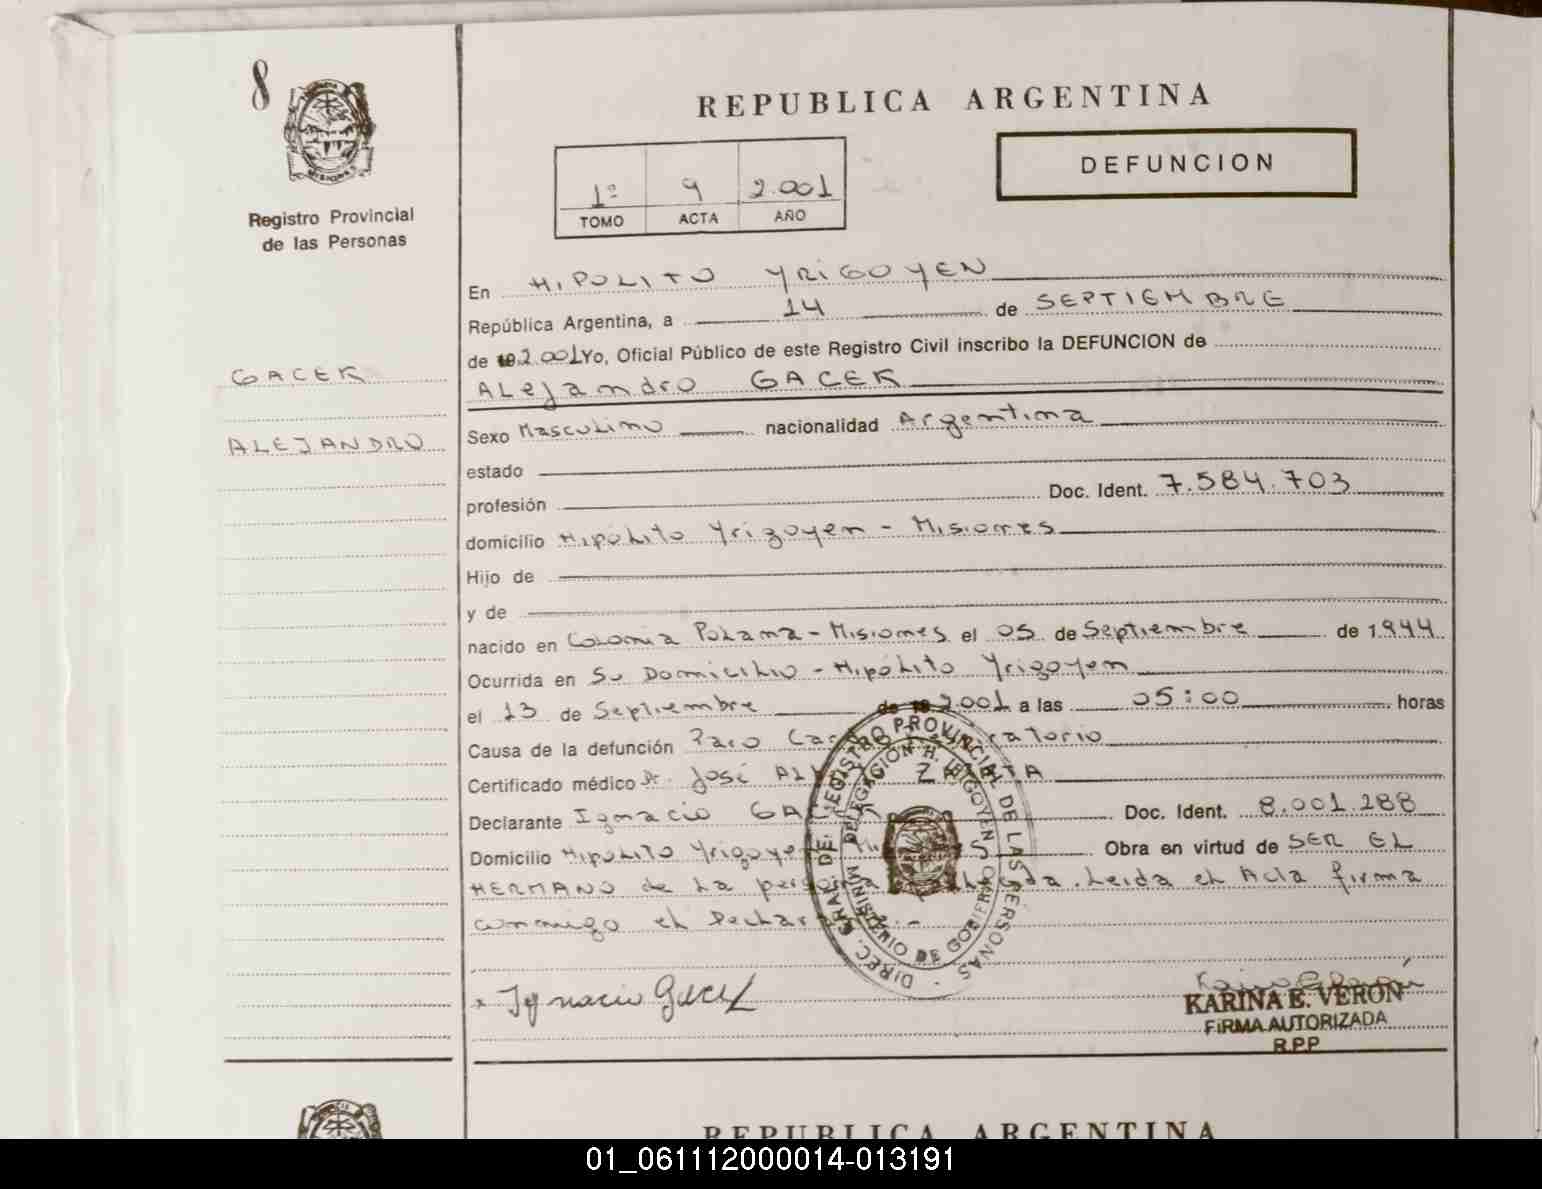 8
MISIONES
Registro Provincial
de las Personas
GACEK
ALEJANDRO
REPUBLICA ARGENTINA
DEFUNCION
1º 9 2.001
TOMO ACTA AÑO
En HIPOLITO YRIGOYEN
República Argentina, a 14 de SEPTIEMBRE
de 19 2.001 Yo, Oficial Público de este Registro Civil inscribo la DEFUNCION de
ALejandro GACEK
Sexo Masculino nacionalidad Argentina
estado
profesión Doc. Ident. 7.584.703
domicilio Hipólito Yrigoyen - Misiones
Hijo de
y de
nacido en Colonia Polana - Misiones el 05 de Septiembre de 1944
Ocurrida en Su Domicilio - Hipólito Yrigoyen
el 13 de Septiembre de 19 2.001 a las 05:00 horas
Causa de la defunción Paro Car ratorio
Certificado médico Dr. José
Declarante Ignacio GACEK Doc. Ident. 8.001.288
Domicilio Hipolito Yrigoyen Obra en virtud de SER EL
HERMANO de La persona . Leida el Acta firma
conmigo el Declar
DIREC. GRAL. DEL REGISTRO PROVINCIAL DE LAS PERSONAS
DELEGACIÓN H. IRIGOYEN
MINISTERIO DE GOBIERNO
x Ignacio Gacek
KARINA E. VERÓN
FIRMA AUTORIZADA
R.P.P
REPUBLICA ARGENTINA
01_061112000014-013191